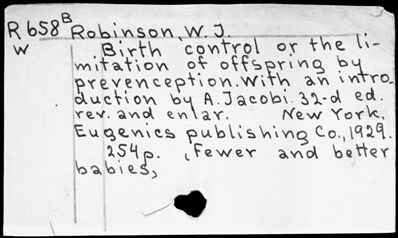 R658 B Robinson, W. J.
W Birth control or the li-
mitation of offspring by
prevenception. With an intro-
duction by A. Jacobi. 32-d ed.
rev. and enlar. New York.
Eugenics publishing Co., 1929.
254p. (Fewer and better
babies,